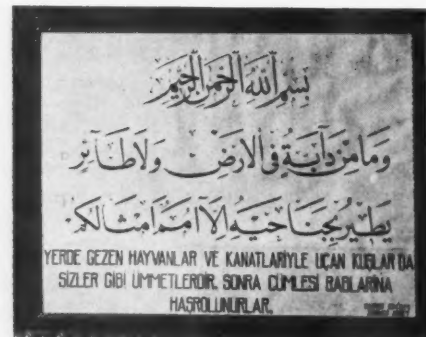 بِسْمِ ٱللَّهِ ٱلرَّحْمَٰنِ ٱلرَّحِيمِ
وَمَا مِنْ دَآبَّةٍ فِى ٱلْأَرْضِ وَلَا طَآئِرٍ
يَطِيرُ بِجَنَاحَيْهِ إِلَّآ أُمَمٌ أَمْثَالُكُمْ
YERDE GEZEN HAYVANLAR VE KANATLARİYLE UÇAN KUŞLAR DA
SİZLER GİBİ ÜMMETLERDİR. SONRA CÜMLESİ RABLARINA
HAŞROLUNURLAR.